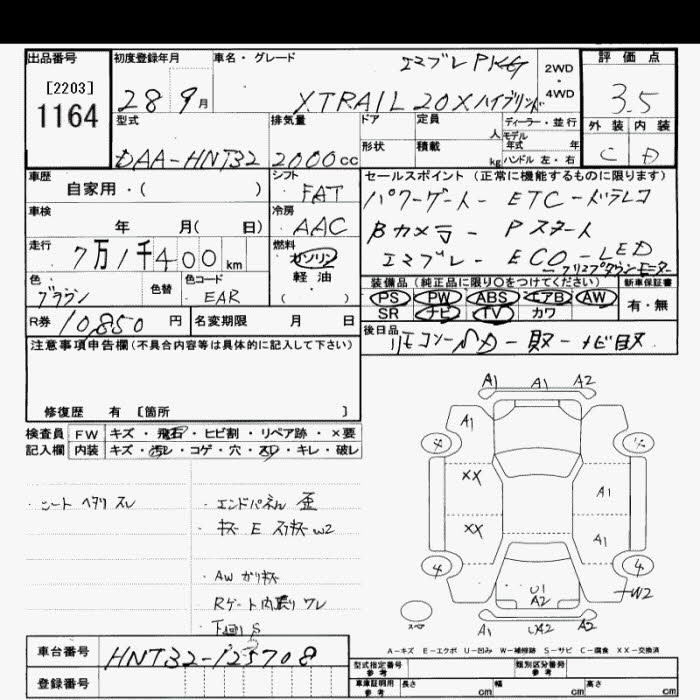 出品番号
[2203]
1164
初度登録年月
28 9月
車名・グレード
エマブレPKG
X TRAIL 20Xハイブリッド
2WD
・
4WD
評価点
3.5
外装 内装
C D
型式
DAA-HNT32
排気量
2000cc
ドア
定員
人
形状
積載
kg
ディーラー・並行
モデル
年式 年
ハンドル 左・右
車歴
自家用・( )
シフト
FAT
車検
年 月( 日)
冷房
AAC
走行
7万1千400km
燃料
ガソリン
軽油
( )
色
ブラウン
色替
色コード
EAR
R券 10,850円
名変期限 月 日
セールスポイント(正常に機能するものに限ります)
パワーゲート- ETC-ドラレコ
Bカメラ- Pスタート
エマブレ- ECO-LED
-フリップダウンモニター
装備品(純正品に限り○をつけてください)
新車保証書
PS PW ABS エアB AW
SR ナビ TV カワ
有・無
後日品
リモコン-SD-取-ナビ取
注意事項申告欄(不具合内容等は具体的に記入して下さい)
修復歴 有 [箇所 ]
検査員
記入欄
FW キズ・飛石・ヒビ割・リペア跡・×要
内装 キズ・汚レ・コゲ・穴・スレ・キレ・破レ
・シート ヘタリ スレ
・エンドパネル 歪
・キズ E スリキズ W2
・AW ガリキズ
Rゲート内張り ワレ
・下廻り S
A1 A1 A2
A1
XX
A1
XX
A1
4
4
W2
U1
A2
A1 UA2 A1
スペア
A-キズ E-エクボ U-凹み W-補修跡 S-サビ C-腐食 XX-交換済
車台番号
HNT32-125708
登録番号
型式指定番号
参考
類別区分番号
参考
車庫証明用
参考
長さ cm
幅 cm
高さ cm